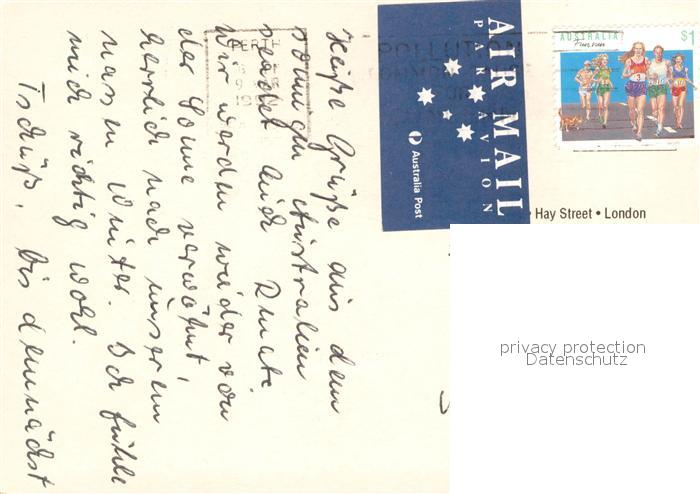 Heiße Grüße aus dem
sonnigen Australien
sendet Euch
Wir werden wieder von
der Sonne verwöhnt,
herrlich nach unserem
nassen Winter. Ich fühle
mich richtig wohl.
Tschüß, bis demnächst
PERTH
AIR MAIL
PAR AVION
Australia Post
AUSTRALIA $1
Fun run
Hay Street • London
privacy protection
Datenschutz